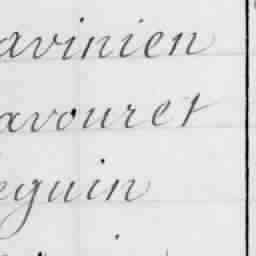 avinien
avouret
eguin